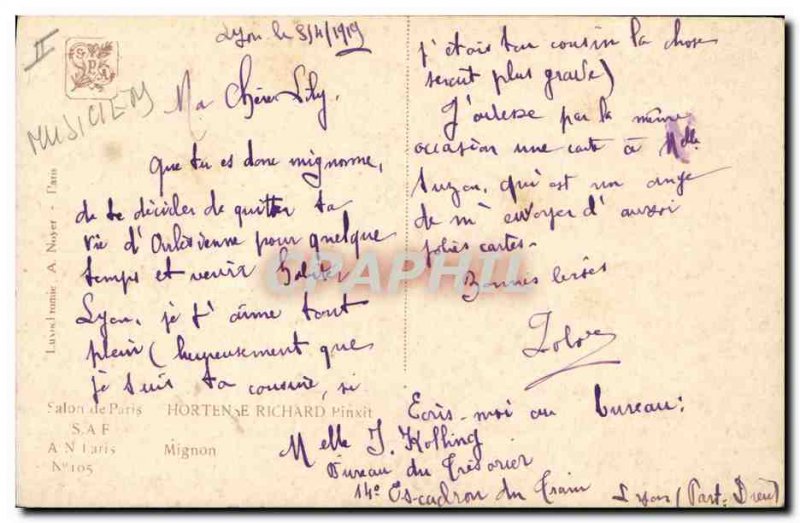 Lyon le 3/4/1919
II
MUSICIEN
Ma Chère Lily,
Que tu es donc mignonne,
de te décider de quitter ta
vie d'Orléisienne pour quelque
temps et venir habiter
Lyon, je t'aime tout
plein (heureusement que
je suis ta cousine, si
j'étais ton cousin la chose
serait plus grave)
J'adresse par la même
occasion une carte à Melle
Suzon, qui est un ange
de m'envoyer d'aussi
jolies cartes.
Bonnes bises
Ecris-moi au bureau:
Melle J. Kolbing
Bureau du Trésorier
14e Escadron du Train
Lyon (Part-Dieu)
Luxochromie A. Noyer - Paris
Salon de Paris
S.A.F
A.N Paris
No 105
HORTENSE RICHARD Pinxit
Mignon
CPAPHIL